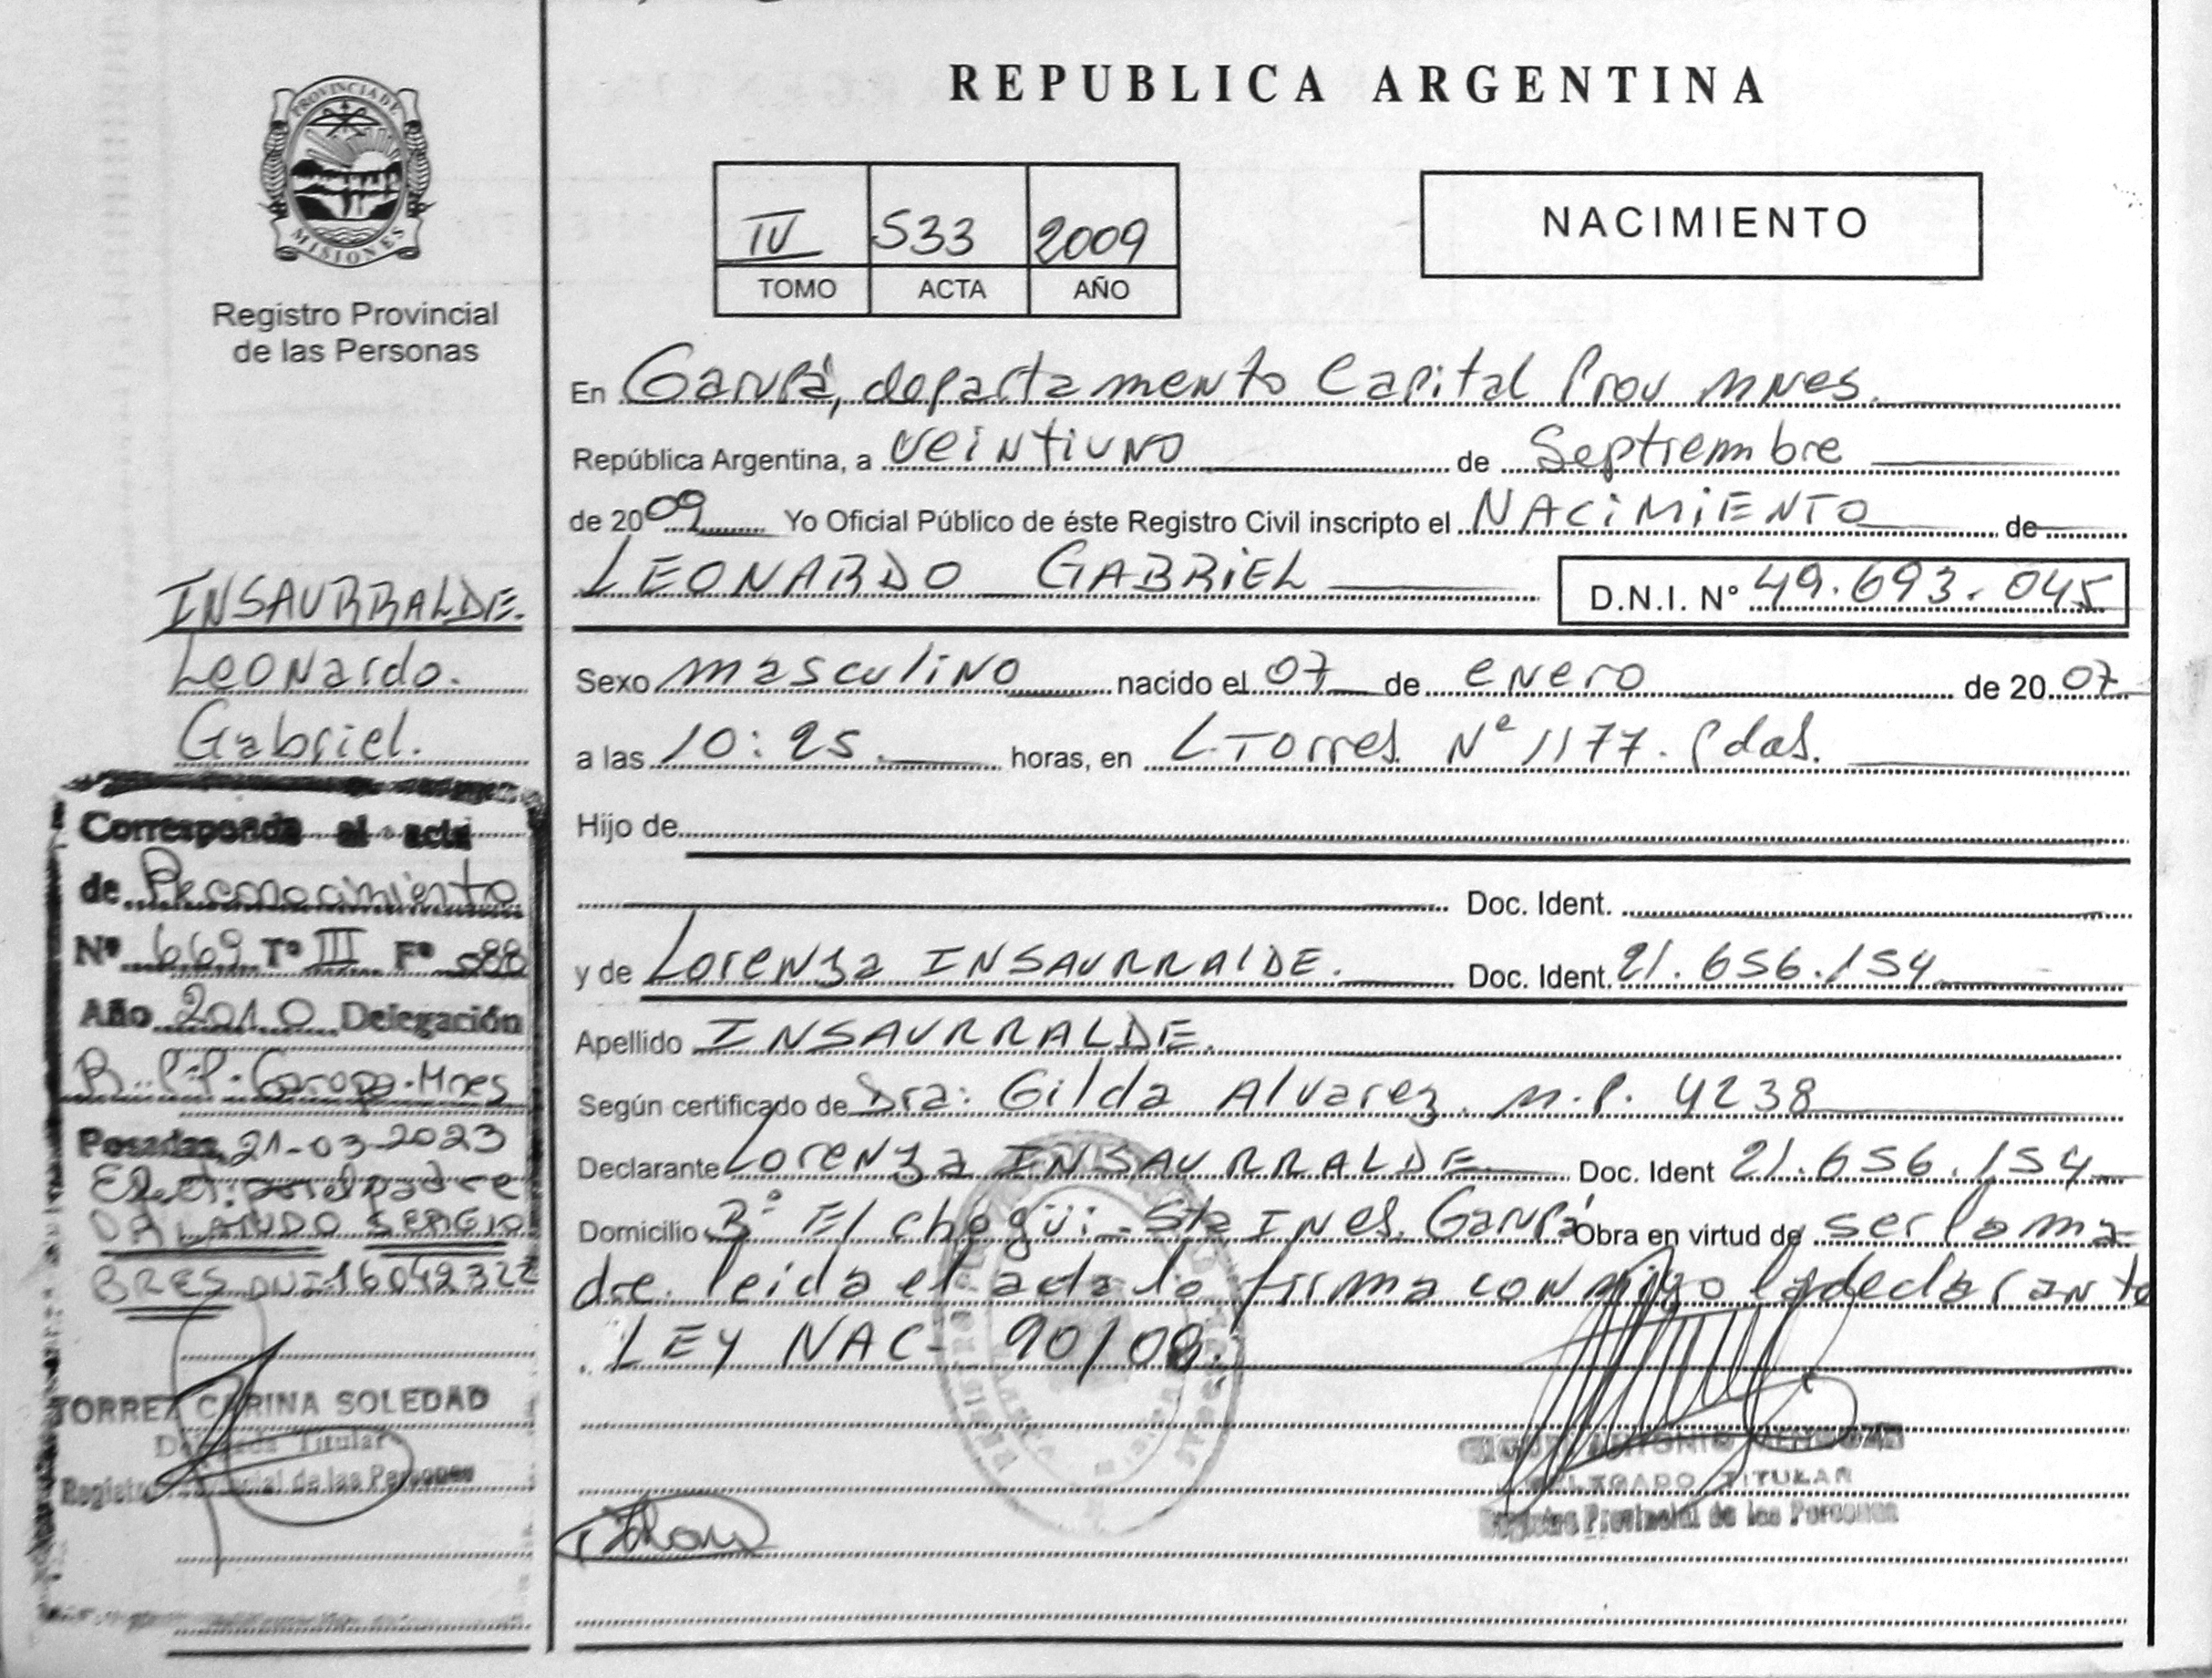 PROVINCIA DE
MISIONES
Registro Provincial
de las Personas
INSAURRALDE.
Leonardo.
Gabriel.
Corresponde al acta
de Reconocimiento
Nº 669 Tº III Fº 088
Año 2010 Delegación
R.P.P. Garupa-Mnes
Posadas, 21-03-2023
Efect. por el padre
ORLANDO SERGIO
BRES DNI-16042322
TORREZ CARINA SOLEDAD
Delegada Titular
Registro Provincial de las Personas
REPUBLICA ARGENTINA
IV 533 2009
TOMO ACTA AÑO
NACIMIENTO
En Garupá, departamento Capital Prov Mnes.
República Argentina, a veintiuno de Septiembre
de 2009 Yo Oficial Público de éste Registro Civil inscripto el NACIMIENTO de
LEONARDO GABRIEL D.N.I. Nº 49.693.045
Sexo masculino nacido el 07 de enero de 2007
a las 10:25 horas, en L. Torres Nº 1177. Pdas.
Hijo de
Doc. Ident.
y de Lorenza INSAURRALDE. Doc. Ident. 21.656.154
Apellido INSAURRALDE.
Según certificado de Dra: Gilda Alvarez. M.P. 4238
Declarante Lorenza INSAURRALDE Doc. Ident 21.656.154
Domicilio Bº El chogüi - Sta INES. Garupá Obra en virtud de ser la ma
dre. leida el acta la firma conmigo la declarante
LEY NAC- 90/09.
ANTONIO
DELEGADO TITULAR
Registro Provincial de las Personas